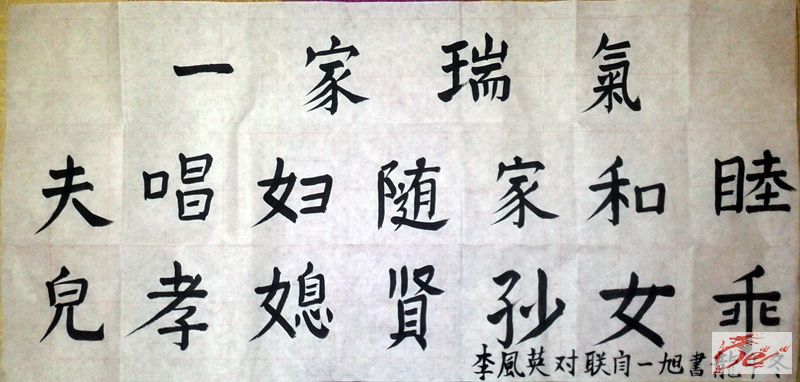 一家瑞氣
夫唱妇随家和睦
兒孝媳贤孙女乖
李風英对联闫一旭書